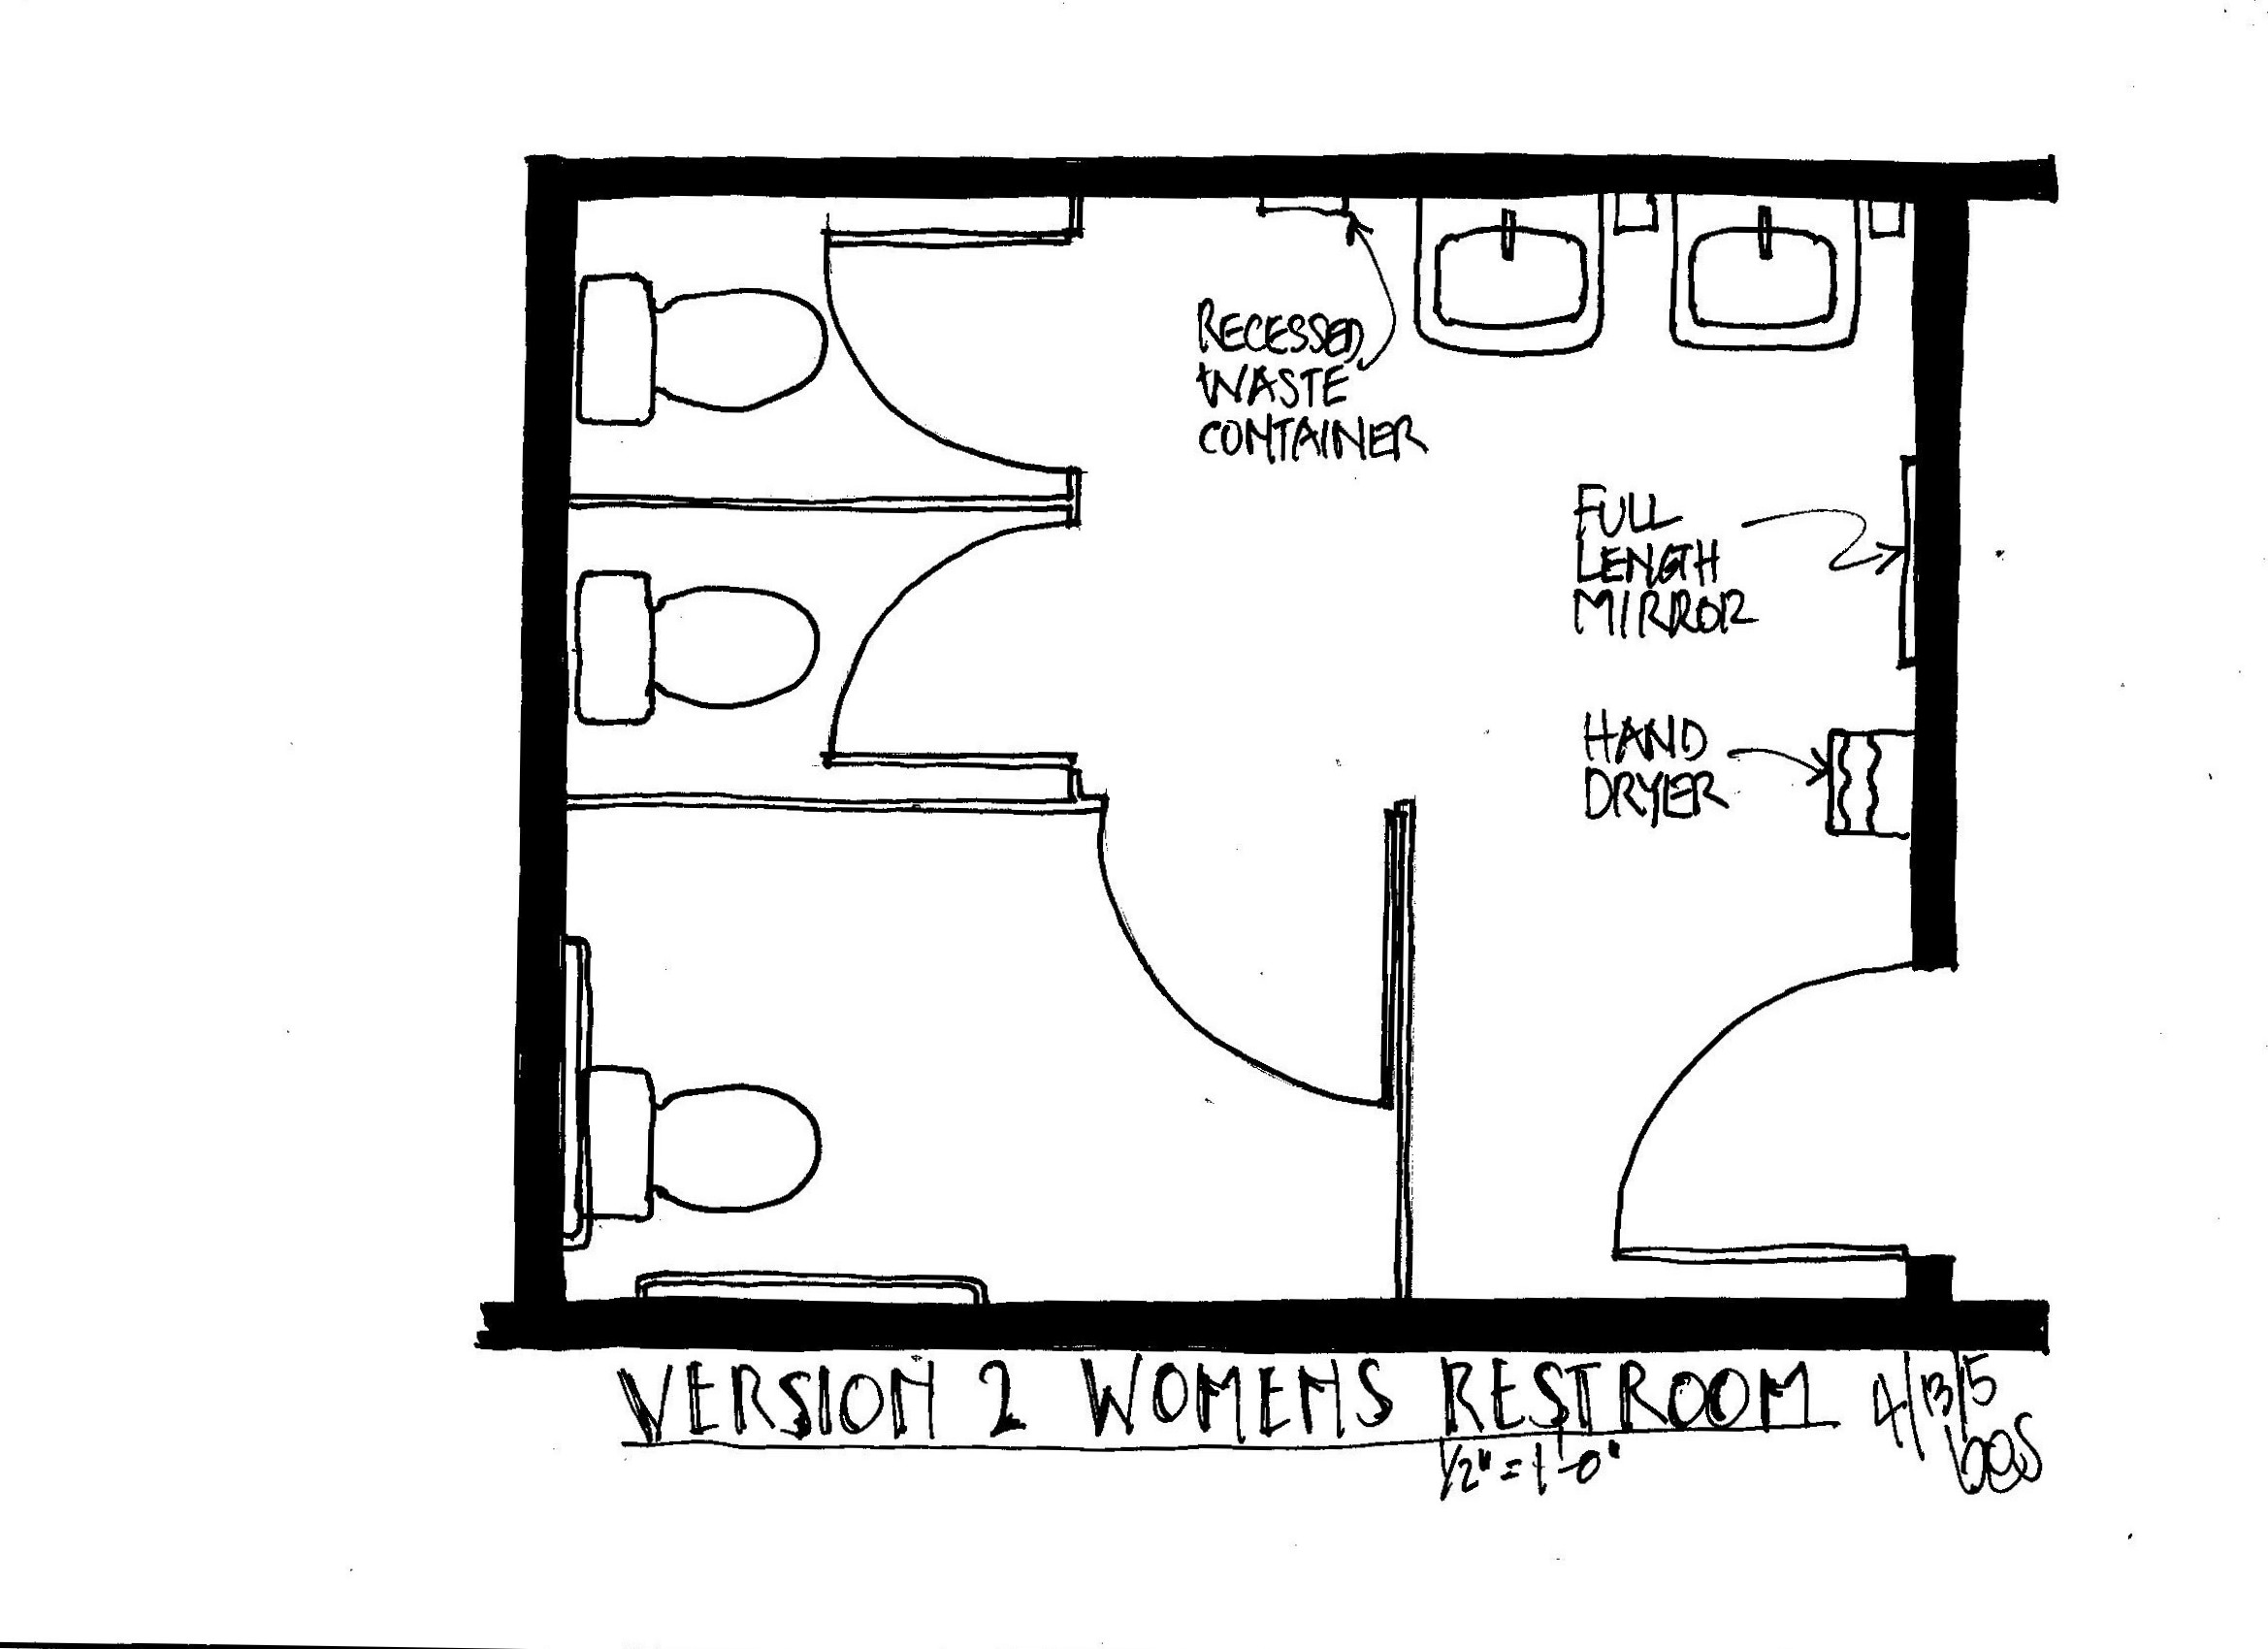 RECESSED
WASTE
CONTAINER
FULL
LENGTH
MIRROR
HAND
DRYER
VERSION 2 WOMENS RESTROOM 4/13/5
1/2" = 1'-0"